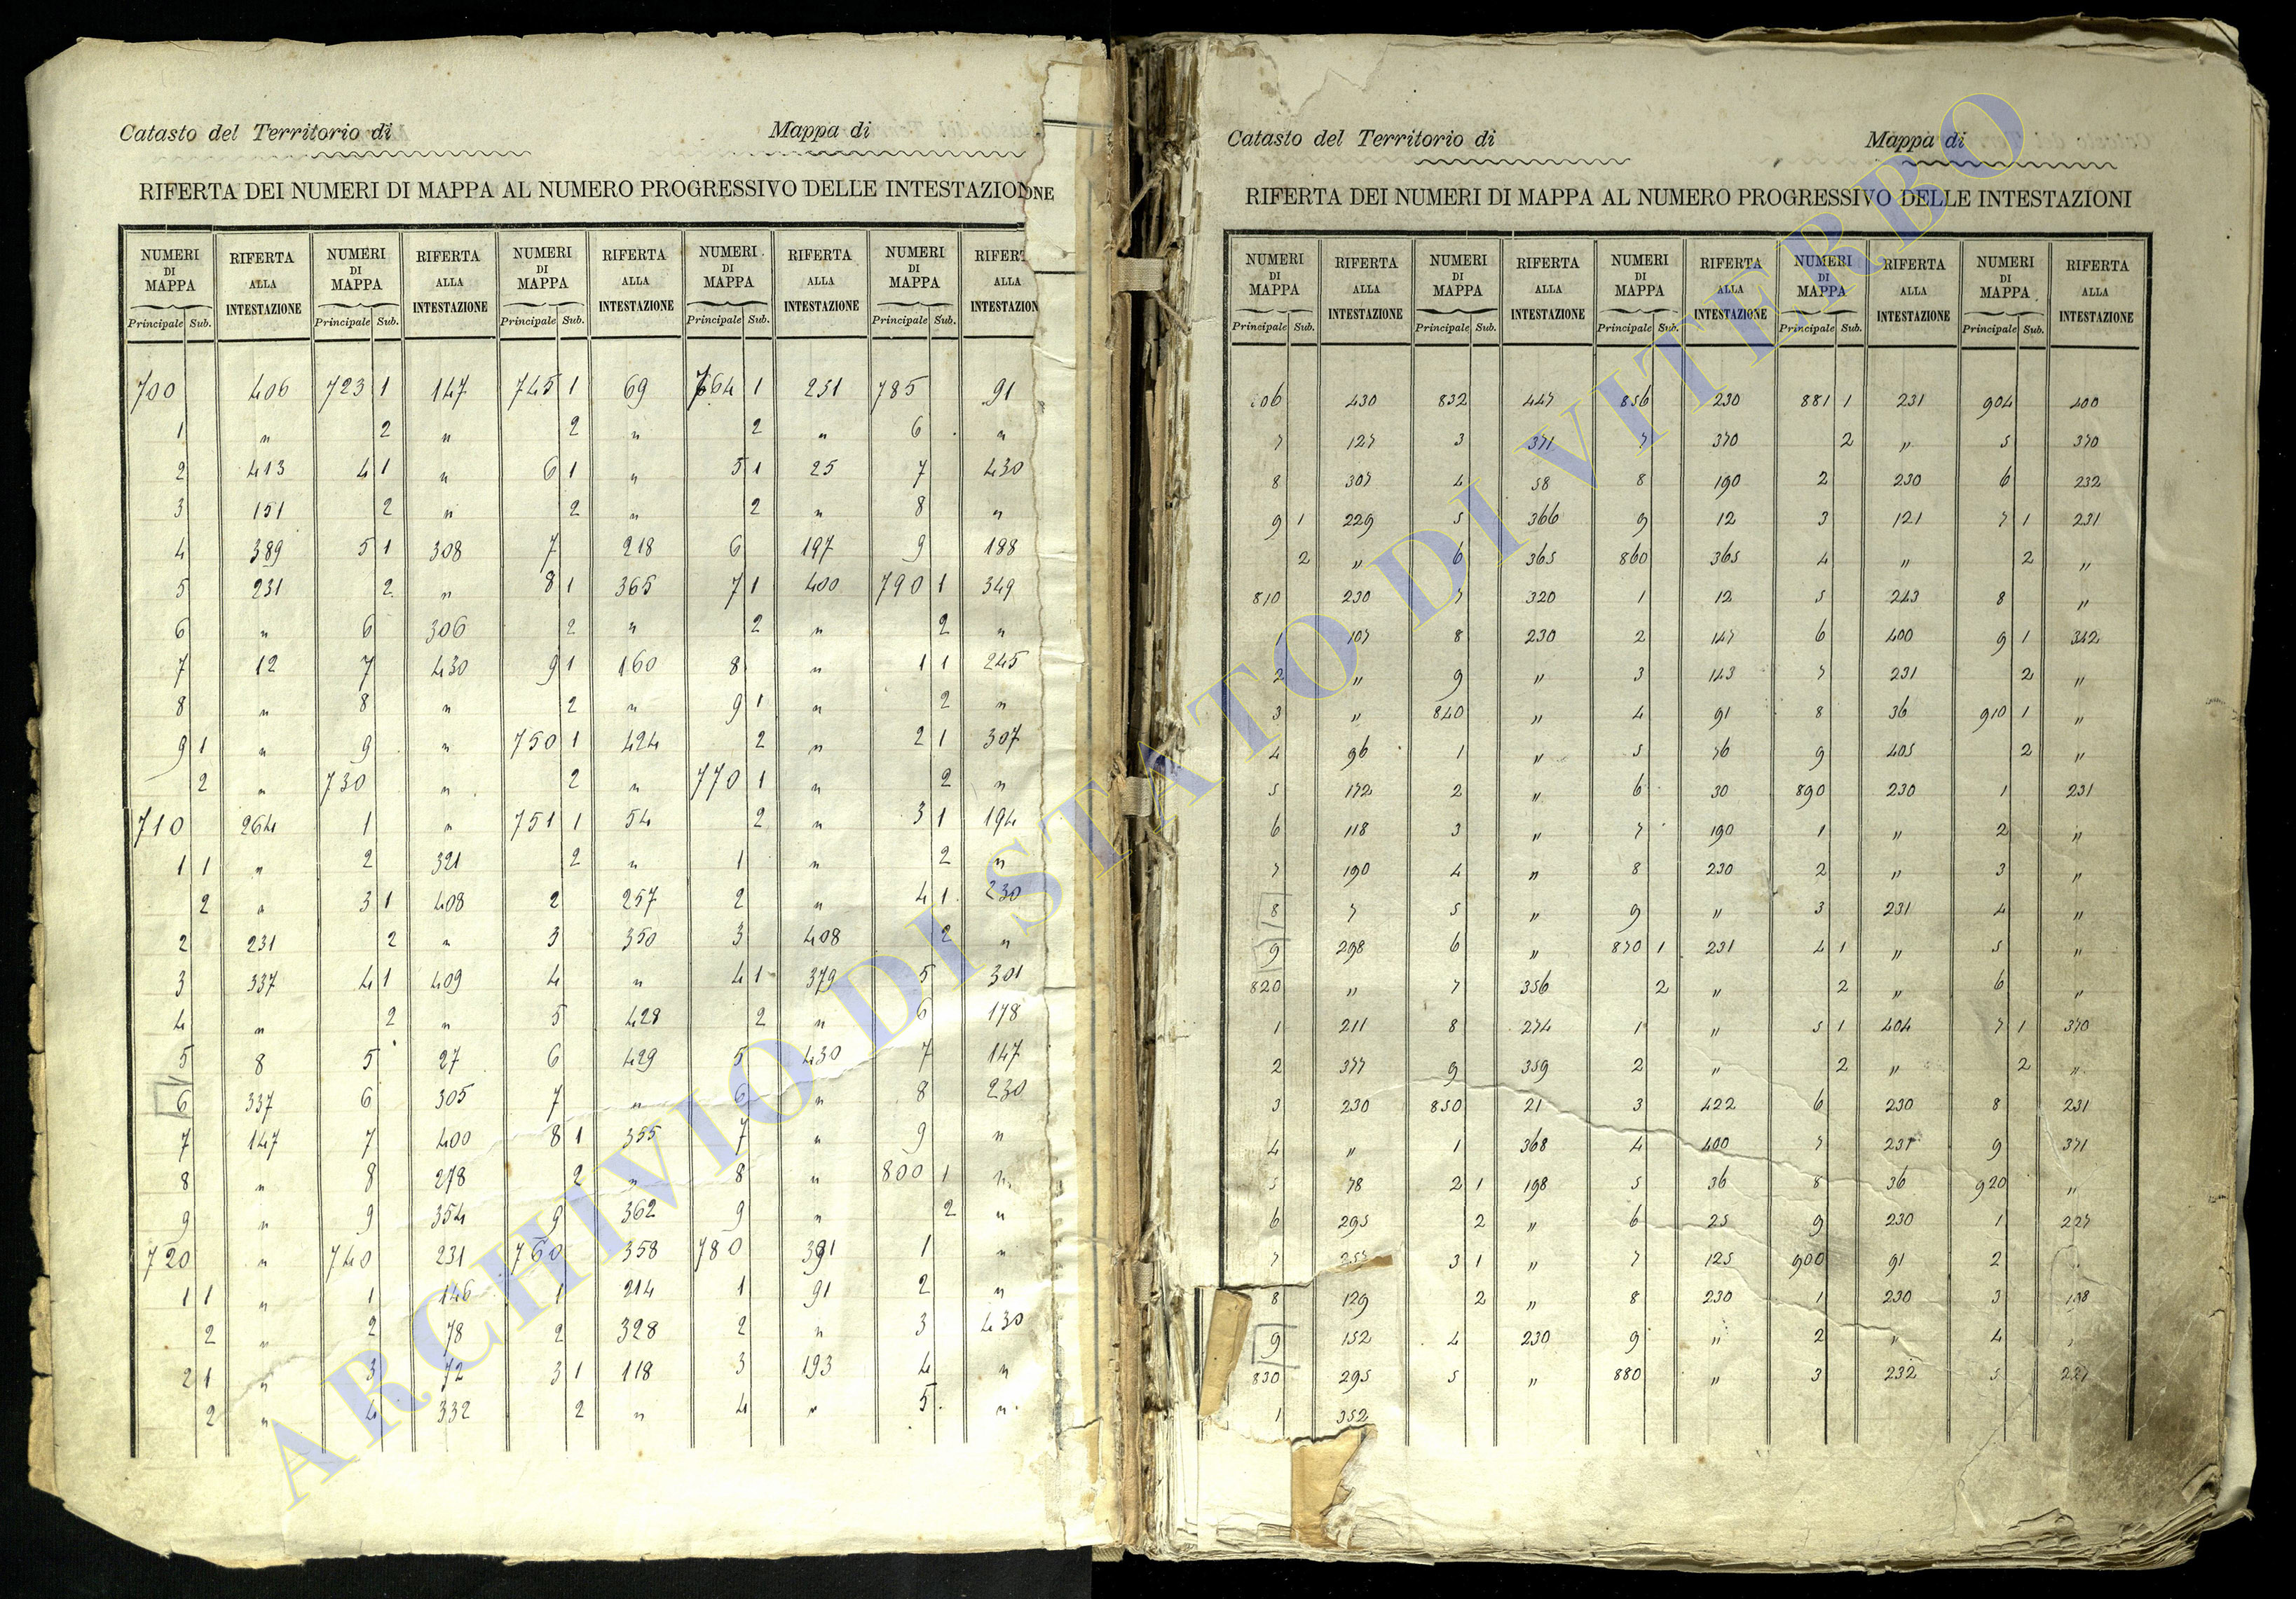 Catasto del Territorio di Mappa di
RIFERTA DEI NUMERI DI MAPPA AL NUMERO PROGRESSIVO DELLE INTESTAZIONE
NUMERI DI MAPPA RIFERTA ALLA INTESTAZIONE NUMERI DI MAPPA RIFERTA ALLA INTESTAZIONE NUMERI DI MAPPA RIFERTA ALLA INTESTAZIONE NUMERI DI MAPPA RIFERTA ALLA INTESTAZIONE NUMERI DI MAPPA RIFERT ALLA INTESTAZION
Principale Sub. Principale Sub. Principale Sub. Principale Sub. Principale Sub.
700 406 723 1 147 745 1 69 764 1 231 785 91
1 " 2 " 2 " 2 " 6 "
2 413 4 1 " 6 1 " 5 1 25 7 430
3 151 2 " 2 " 2 " 8 "
4 389 5 1 308 7 218 6 197 9 198
5 231 2 " 8 1 365 7 1 400 790 1 349
6 " 6 306 2 " 2 " 2 "
7 12 7 430 9 1 160 8 " 1 1 245
8 " 8 " 2 " 9 1 " 2 "
9 1 " 9 " 750 1 424 2 " 2 1 307
2 " 730 " 2 " 770 1 " 2 "
710 264 1 " 751 1 54 2 " 3 1 194
1 1 " 2 321 2 " 1 " 2 "
2 " 3 1 408 2 257 2 " 4 1 230
2 231 2 " 3 350 3 408 2 "
3 337 4 1 409 4 " 4 1 379 5 301
4 " 2 " 5 428 2 " 6 178
5 8 5 27 6 429 5 430 7 147
6 337 6 305 7 " 6 " 8 230
7 147 7 400 8 1 355 7 " 9 "
8 " 8 278 2 " 8 " 800 1 "
9 " 9 354 9 362 9 " 2 "
720 " 740 231 760 358 780 391 1 "
1 1 " 1 146 1 214 1 91 2 "
2 " 2 78 2 328 2 " 3 430
2 1 " 3 72 3 1 118 3 193 4 "
2 " 4 332 2 " 4 " 5 "
Catasto del Territorio di Mappa di
RIFERTA DEI NUMERI DI MAPPA AL NUMERO PROGRESSIVO DELLE INTESTAZIONI
NUMERI DI MAPPA RIFERTA ALLA INTESTAZIONE NUMERI DI MAPPA RIFERTA ALLA INTESTAZIONE NUMERI DI MAPPA RIFERTA ALLA INTESTAZIONE NUMERI DI MAPPA RIFERTA ALLA INTESTAZIONE NUMERI DI MAPPA RIFERTA ALLA INTESTAZIONE
Principale Sub. Principale Sub. Principale Sub. Principale Sub. Principale Sub.
06 430 832 447 856 230 881 1 231 904 400
7 127 3 371 7 370 2 " 5 370
8 307 4 58 8 190 2 230 6 232
9 1 229 5 366 9 12 3 121 7 1 231
2 " 6 365 860 365 4 " 2 "
810 230 7 320 1 12 5 243 8 "
107 8 230 2 147 6 400 9 1 342
2 " 9 " 3 143 7 231 2 "
3 " 840 " 4 91 8 36 910 1 "
4 96 1 " 5 76 9 405 2 "
5 172 2 " 6 30 890 230 1 231
6 118 3 " 7 190 1 " 2 "
7 190 4 " 8 230 2 " 3 "
8 7 5 " 9 " 3 231 4 "
9 298 6 " 870 1 231 4 1 " 5 "
820 " 7 356 2 " 2 " 6 "
1 211 8 274 1 " 5 1 404 7 1 370
2 377 9 359 2 " 2 " 2 "
3 230 850 21 3 422 6 230 8 231
4 " 1 368 4 400 7 231 9 371
5 78 2 1 198 5 36 8 36 920 "
6 295 2 " 6 25 9 230 1 227
7 257 3 1 " 7 125 900 91 2
8 129 2 " 8 230 1 230 3 198
9 152 4 230 9 " 2 " 4 "
830 295 5 " 880 " 3 232 5 227
1 352
ARCHIVIO DI STATO DI VITERBO